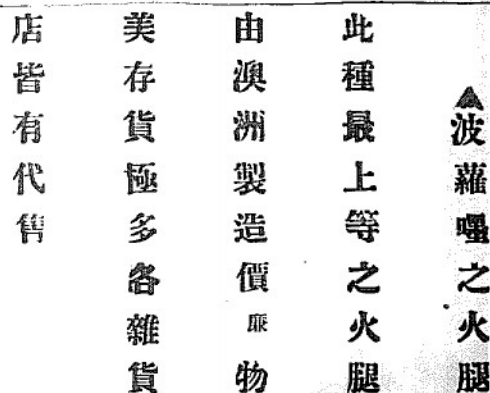 ▲波蘿嘿之火腿
此種最上等之火腿
由澳洲製造價廉物
美存貨極多各雜貨
店皆有代售